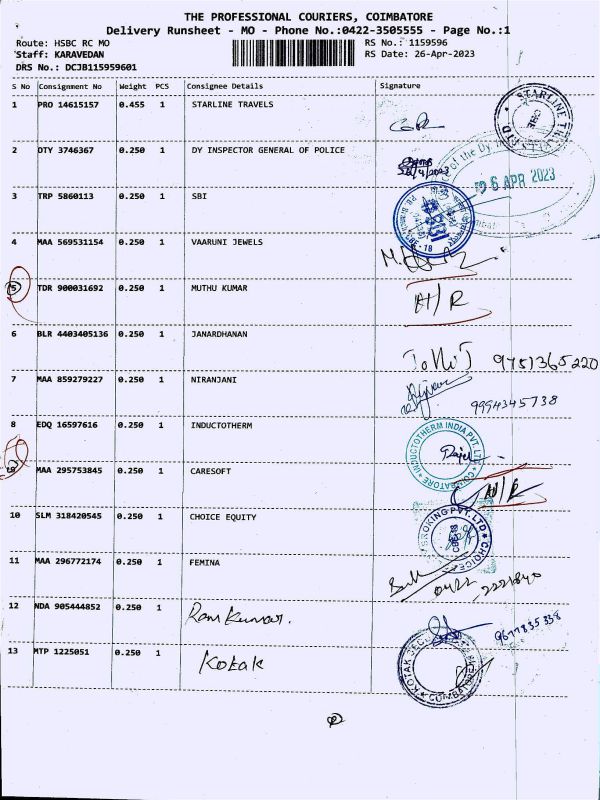 THE PROFESSIONAL COURIERS, COIMBATORE
Delivery Runsheet - MO - Phone No.:0422-3505555 - Page No.:1
Route: HSBC RC MO RS No.: 1159596
Staff: KARAVEDAN RS Date: 26-Apr-2023
DRS No.: DCJB115959601
S No Consignment No Weight PCS Consignee Details Signature
1 PRO 14615157 0.455 1 STARLINE TRAVELS
2 DTY 3746367 0.250 1 DY INSPECTOR GENERAL OF POLICE
26 APR 2023
3 TRP 5860113 0.250 1 SBI
SBI
4 MAA 569531154 0.250 1 VAARUNI JEWELS
5 TDR 900031692 0.250 1 MUTHU KUMAR A/R
6 BLR 4403405136 0.250 1 JANARDHANAN 9751365220
7 MAA 859279227 0.250 1 NIRANJANI 9994345738
8 EDQ 16597616 0.250 1 INDUCTOTHERM
INDUCTOTHERM INDIA PVT. LTD COIMBATORE
MAA 295753845 0.250 1 CARESOFT A/R
10 SLM 318420545 0.250 1 CHOICE EQUITY
BROKING PVT. LTD CHOICE
11 MAA 296772174 0.250 1 FEMINA 0422 2221840
12 NDA 905444852 0.250 1 Ram Kumar. 9677835338
13 MTP 1225051 0.250 1 Kotak
KOTAK COIMBATORE